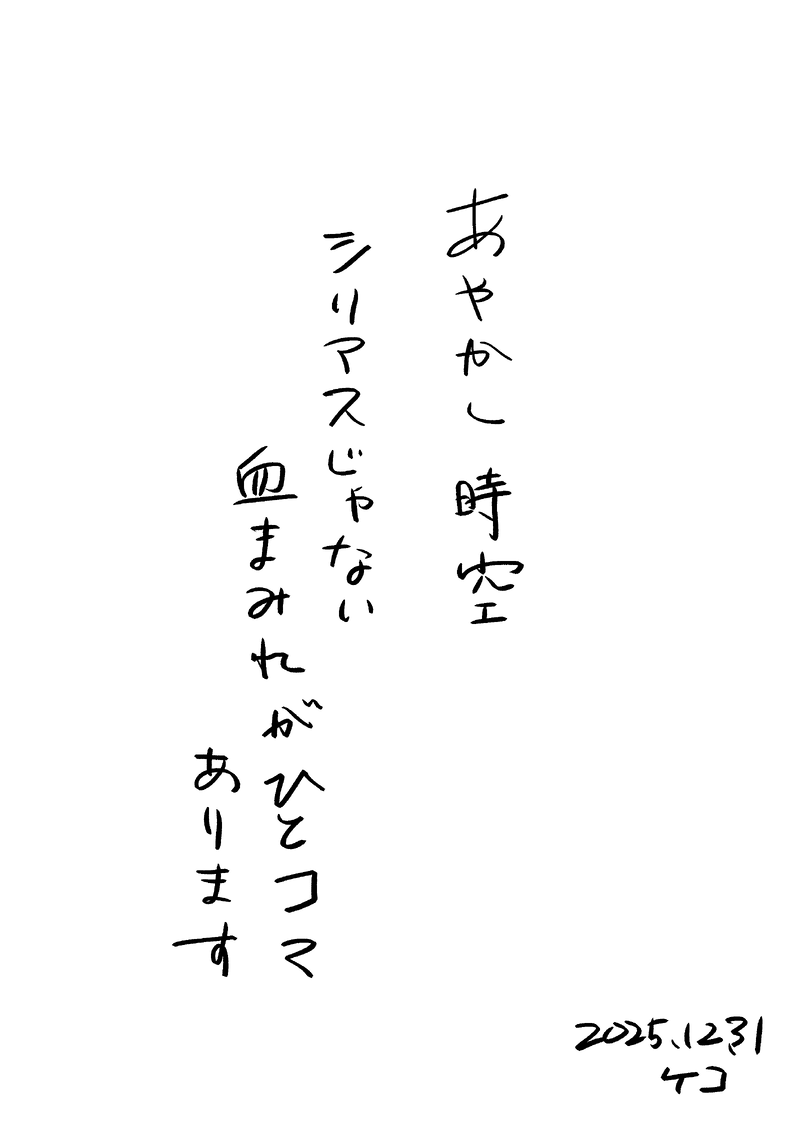 あやかし時空
シリアスじゃない
血まみれがひとコマ
あります
2025.12.31
ケコ